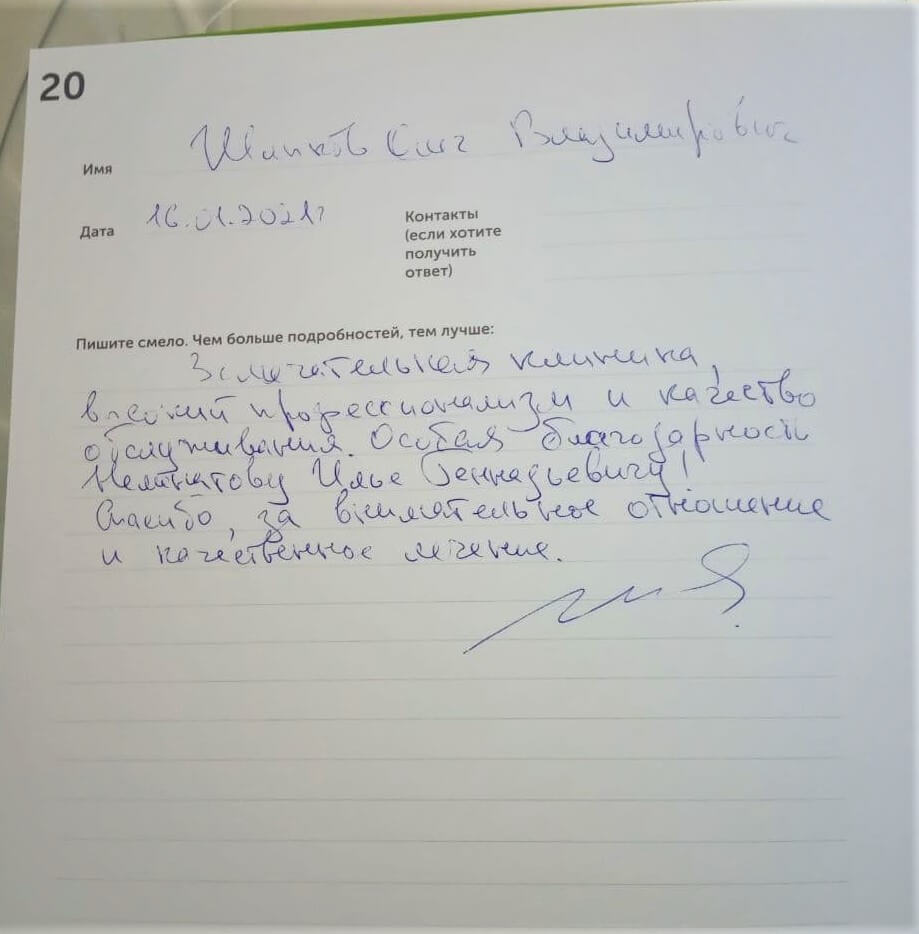 20
Имя Шлыков Олег Владимирович
Дата 16.01.2021г
Контакты
(если хотите
получить
ответ)
Пишите смело. Чем больше подробностей, тем лучше:
Замечательная клиника,
высокий профессионализм и качество
обслуживания. Особая благодарность
Илье Геннадьевичу!
Спасибо, за внимательное отношение
и качественное лечение.